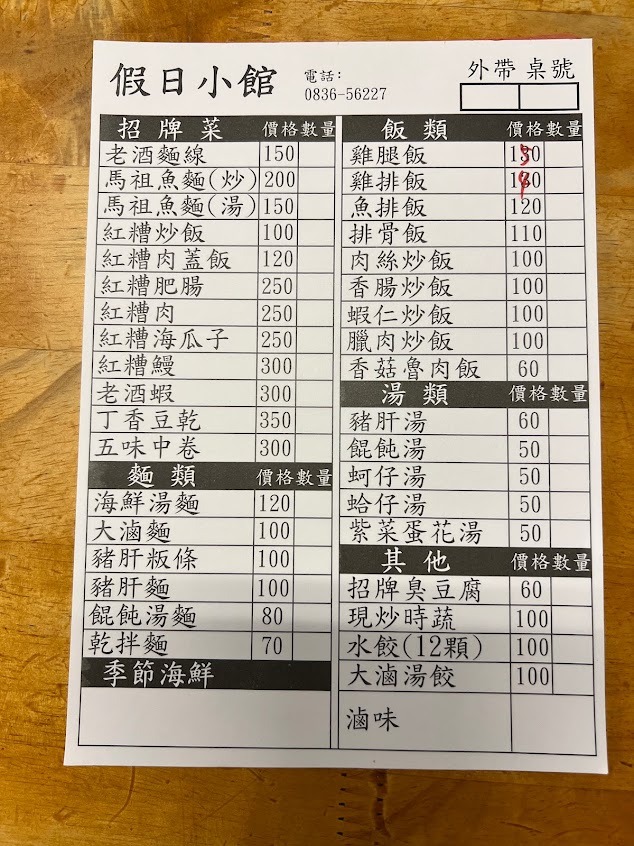 假日小館
電話:
0836-56227
外帶 桌號
招牌菜 價格 數量
老酒麵線 150
馬祖魚麵(炒) 200
馬祖魚麵(湯) 150
紅糟炒飯 100
紅糟肉蓋飯 120
紅糟肥腸 250
紅糟肉 250
紅糟海瓜子 250
紅糟鰻 300
老酒蝦 300
丁香豆乾 350
五味中卷 300
麵類 價格 數量
海鮮湯麵 120
大滷麵 100
豬肝粄條 100
豬肝麵 100
餛飩湯麵 80
乾拌麵 70
季節海鮮
飯類 價格 數量
雞腿飯 130
雞排飯
魚排飯 120
排骨飯 110
肉絲炒飯 100
香腸炒飯 100
蝦仁炒飯 100
臘肉炒飯 100
香菇魯肉飯 60
湯類 價格 數量
豬肝湯 60
餛飩湯 50
蚵仔湯 50
蛤仔湯 50
紫菜蛋花湯 50
其他 價格 數量
招牌臭豆腐 60
現炒時蔬 100
水餃(12顆) 100
大滷湯餃 100
滷味